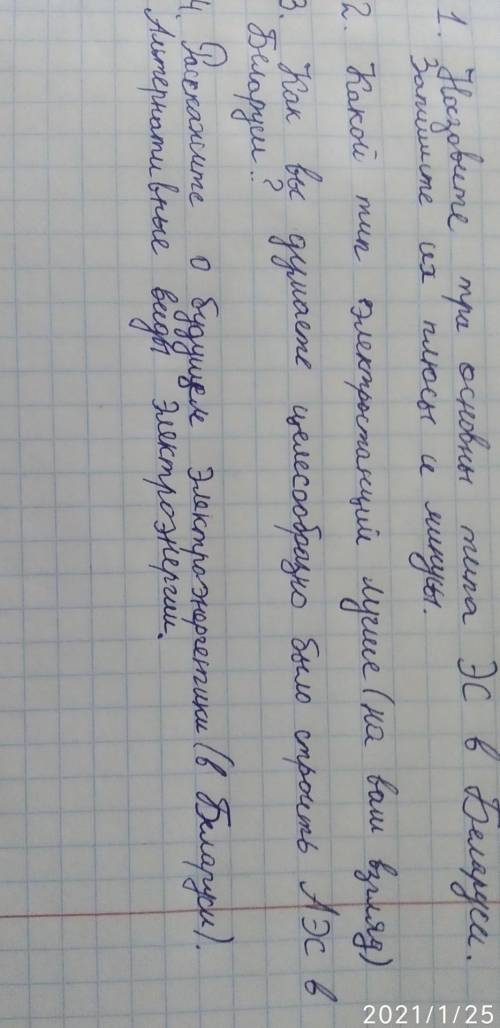 1. Назовите три основны типа ЭС в Беларуси.
Запишите их плюсы и минусы.
2. Какой тип электростанций лучше (на ваш взгляд)
3. Как вы думаете целесообразно было строить АЭС в
Беларуси..?
4. Расскажите о будущем электроэнергетики (в Беларуси).
Альтернативные виды электроэнергии.
2021/1/25